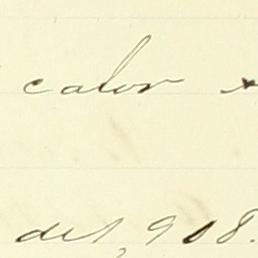 calor
del, 908.